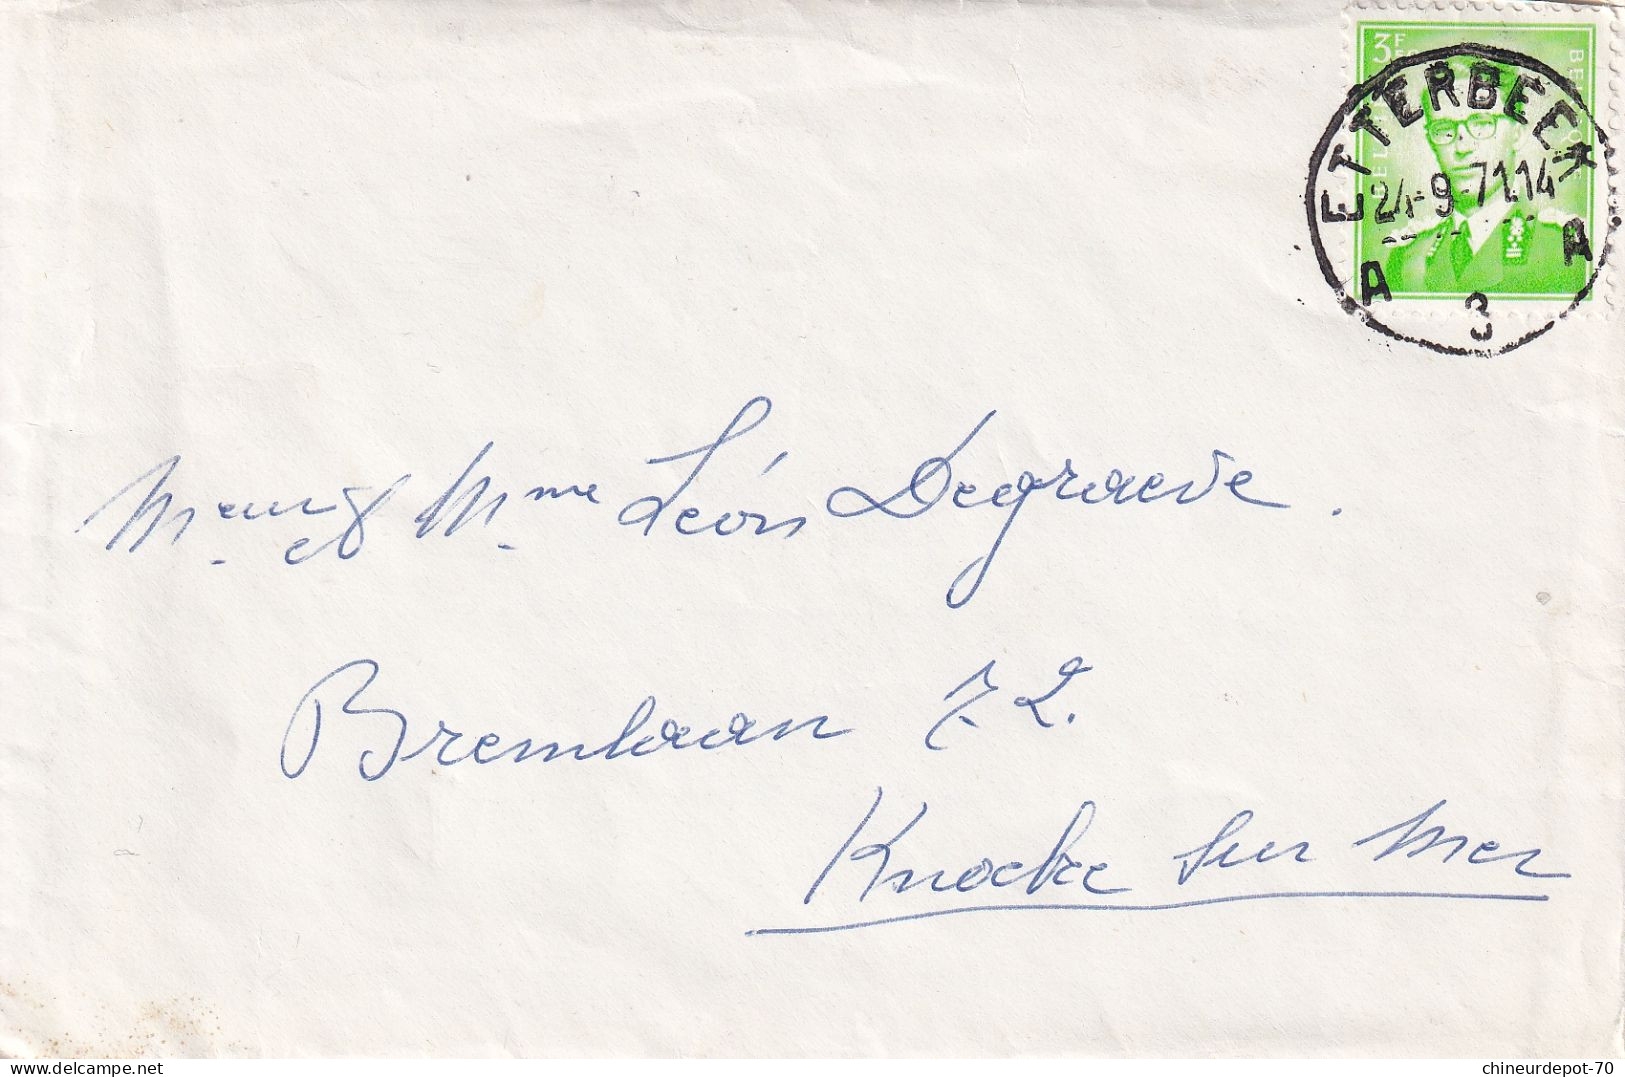 3F
BELGIE
BELGIQUE
ETTERBEEK
24-9-71.14
A 3 A
Meur & Mme Léon Degraeve.
Bremlaan 72.
Knocke sur Mer
delcampe.net
chineurdepot-70